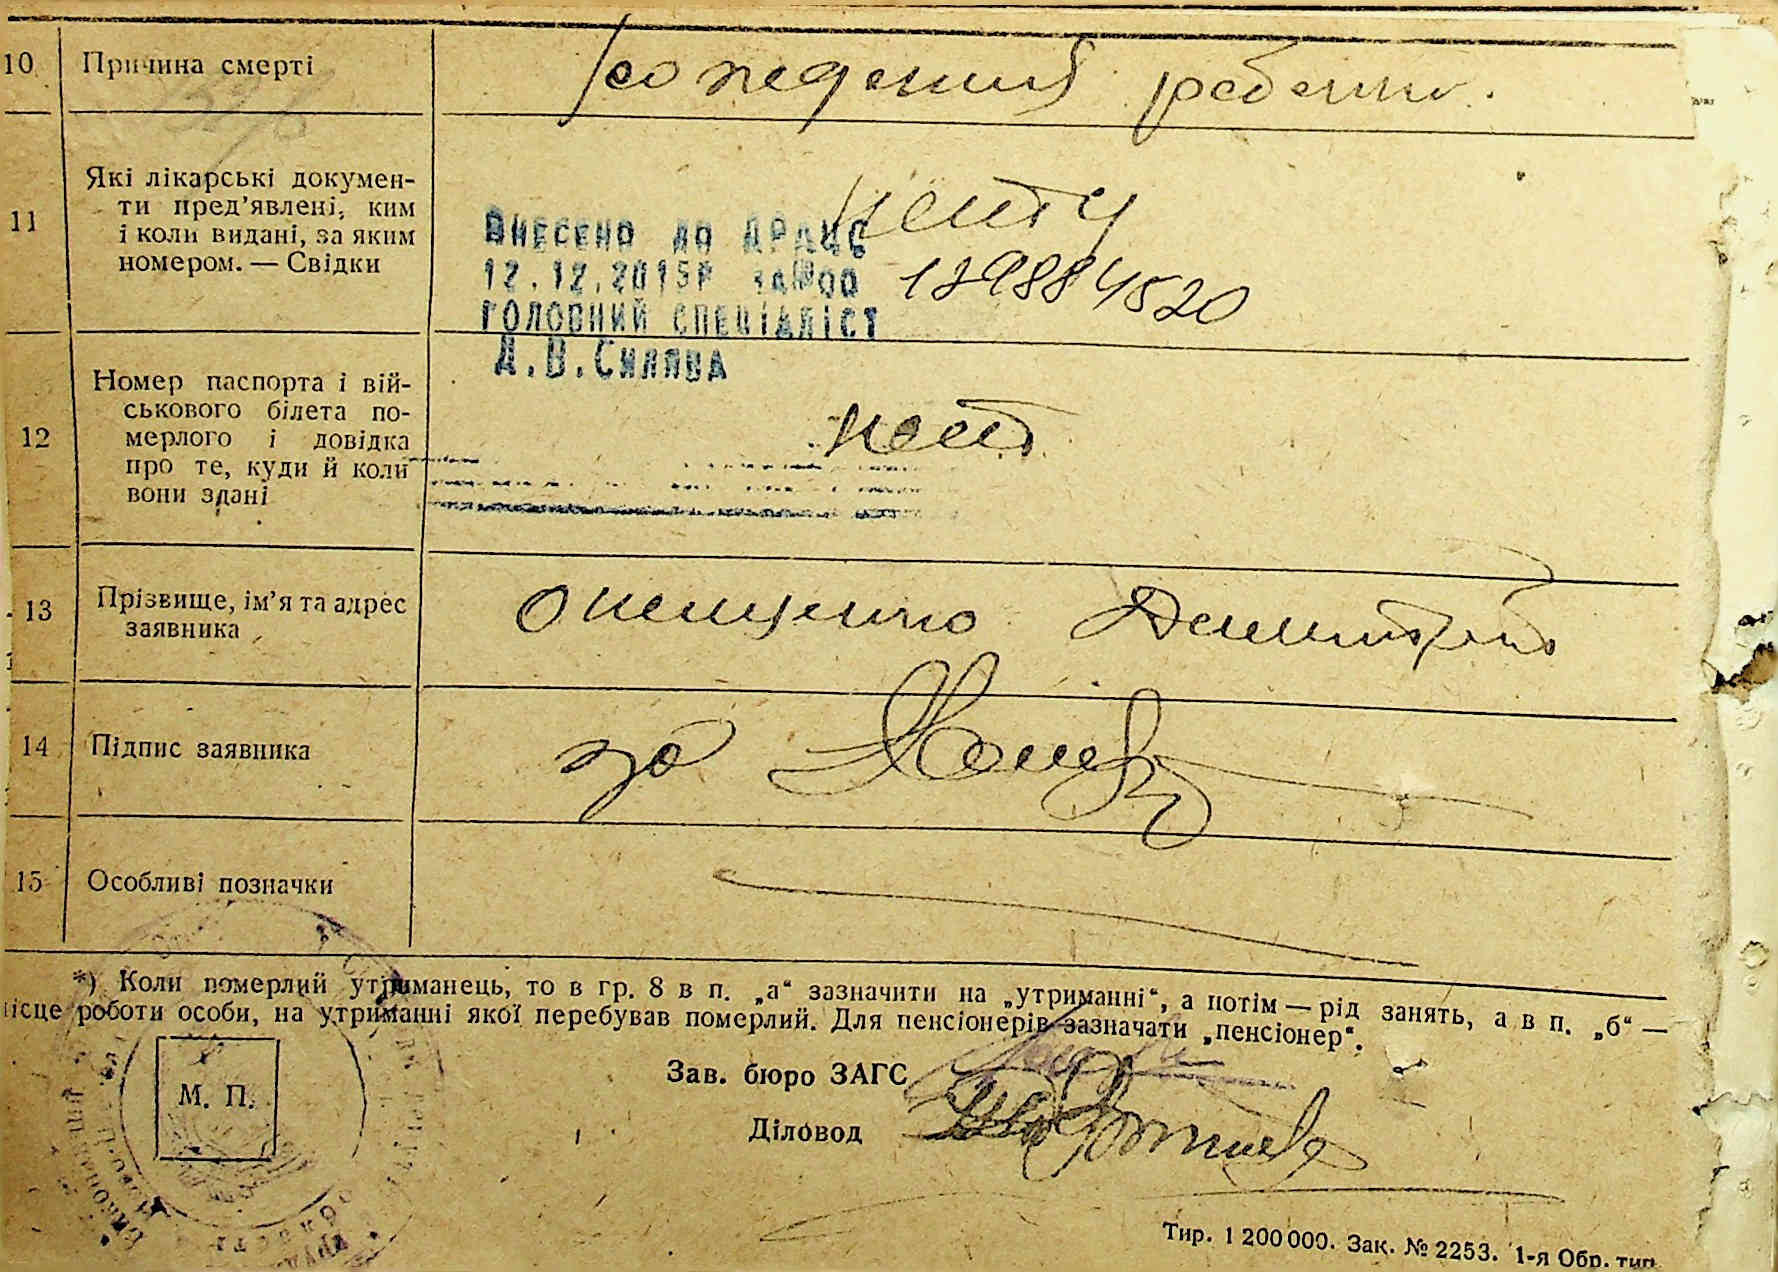 10 Причина смерті рождения ребенка.
11 Які лікарські докумен-
ти пред’явлені, ким
і коли видані, за яким
номером. — Свідки
нету
ВНЕСЕНО ДО ДРАЦС
12.12.2015Р ЗА №00 129884520
ГОЛОВНИЙ СПЕЦІАЛІСТ
Д.В.СИЛЯВА
12 Номер паспорта і вій-
ськового білета по-
мерлого і довідка
про те, куди й коли
вони здані
нет
13 Прізвище, ім’я та адрес
заявника
Онищенко Дмитро
14 Підпис заявника
за
15 Особливі позначки
*) Коли померлий утриманець, то в гр. 8 в п. „а“ зазначити на „утриманні“, а потім — рід занять, а в п. „б“ —
місце роботи особи, на утриманні якої перебував померлий. Для пенсіонерів зазначати „пенсіонер“.
Зав. бюро ЗАГС
М. П.
Діловод
Тир. 1 200 000. Зак. № 2253. 1-я Обр. тип